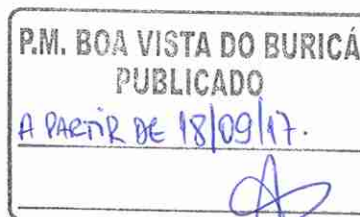 P.M. BOA VISTA DO BURICÁ
PUBLICADO
A PARTIR DE 18/09/17.